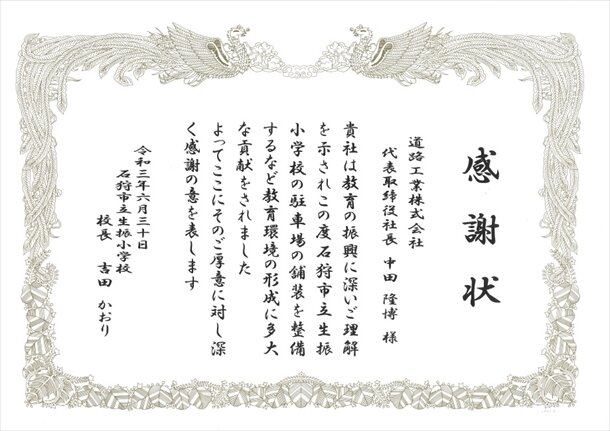 感謝状
道路工業株式会社
代表取締役社長 中田 隆博 様
貴社は教育の振興に深いご理解
を示されこの度石狩市立生振
小学校の駐車場の舗装を整備
するなど教育環境の形成に多大
な貢献をされました
よってここにそのご厚意に対し深
く感謝の意を表します
令和三年六月三十日
石狩市立生振小学校
校長 吉田 かおり